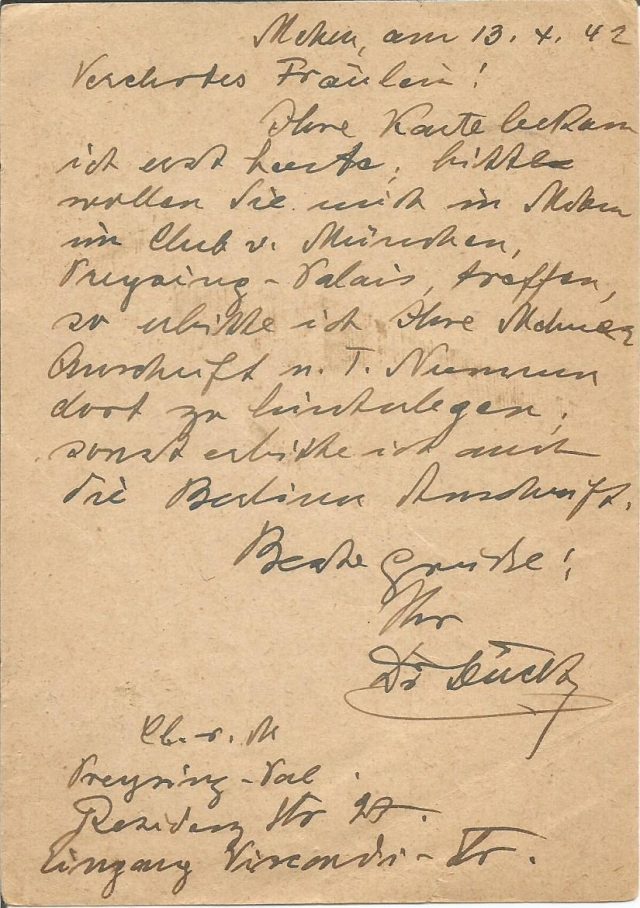 Mchen, am 13. X. 42
Verehrtes Fräulein!
Ihre Karte bekam
ich erst heute, bitte
wollen Sie mich in Mchen
im Club v. München,
Preysing-Palais, treffen,
so erbitte ich Ihre Mchner
Anschrift u. T. Nummer
dort zu hinterlegen,
sonst erbitte ich auch
die Berliner Anschrift.
Beste Grüße!
Ihr
Dr
Cl. v. M
Preysing-Pal.
Residenz Str 27.
Eingang Viscardi-Str.